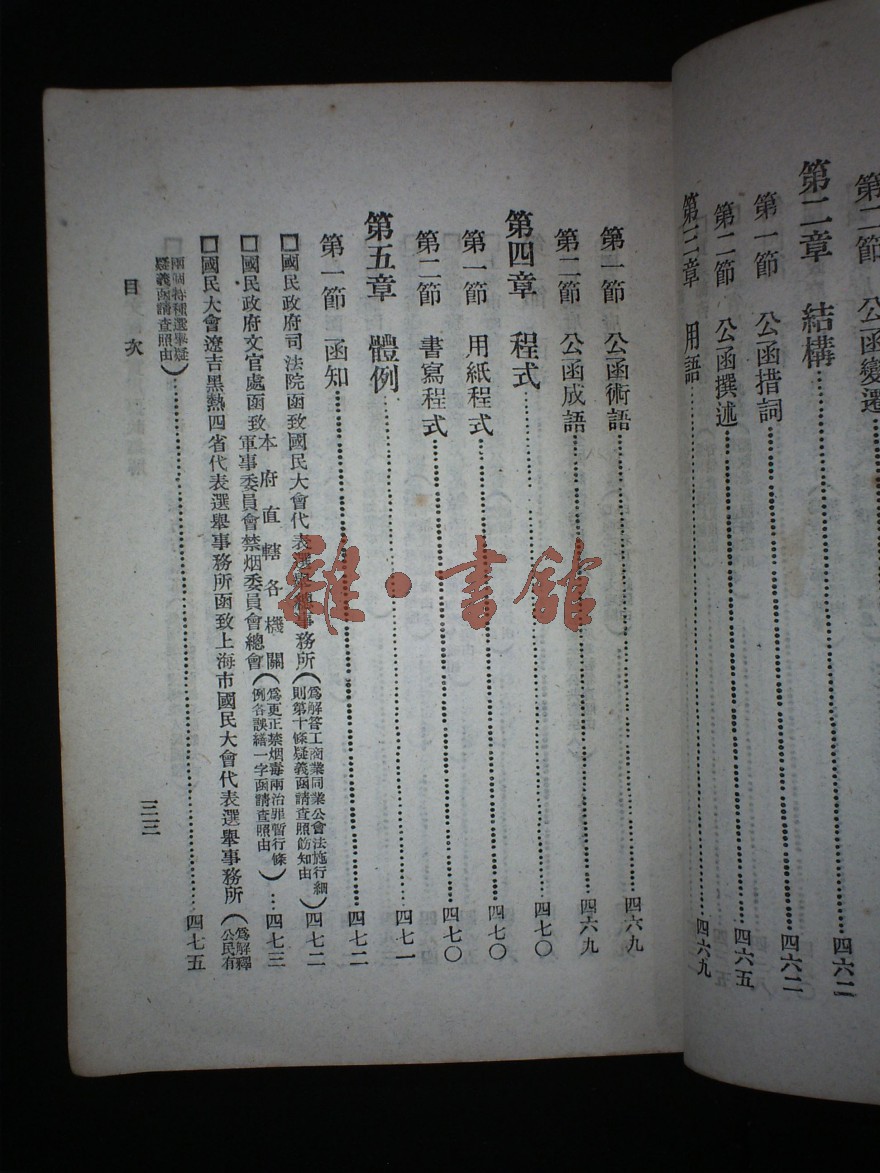 第二節　公函變遷……四六二
第二章　結構……四六二
第一節　公函措詞……四六二
第二節　公函撰述……四六五
第三章　用語……四六九
第一節　公函術語……四六九
第二節　公函成語……四六九
第四章　程式……四七〇
第一節　用紙程式……四七〇
第二節　書寫程式……四七〇
第五章　體例……四七一
第一節　函知……四七二
□國民政府司法院函致國民大會代表選舉總事務所（爲解答工商業同業公會法施行細則第十條疑義函請查照飭知由）四七二
□國民政府文官處函致本府直轄各機關軍事委員會禁烟委員會總會（爲更正禁烟毒兩治罪暫行條例各誤繕一字函請查照由）…四七三
□國民大會遼吉黑熱四省代表選舉事務所函致上海市國民大會代表選舉事務所（爲解釋公民有
兩個特種選舉疑義函請查照由）……四七五
目次
三三
雜·書館